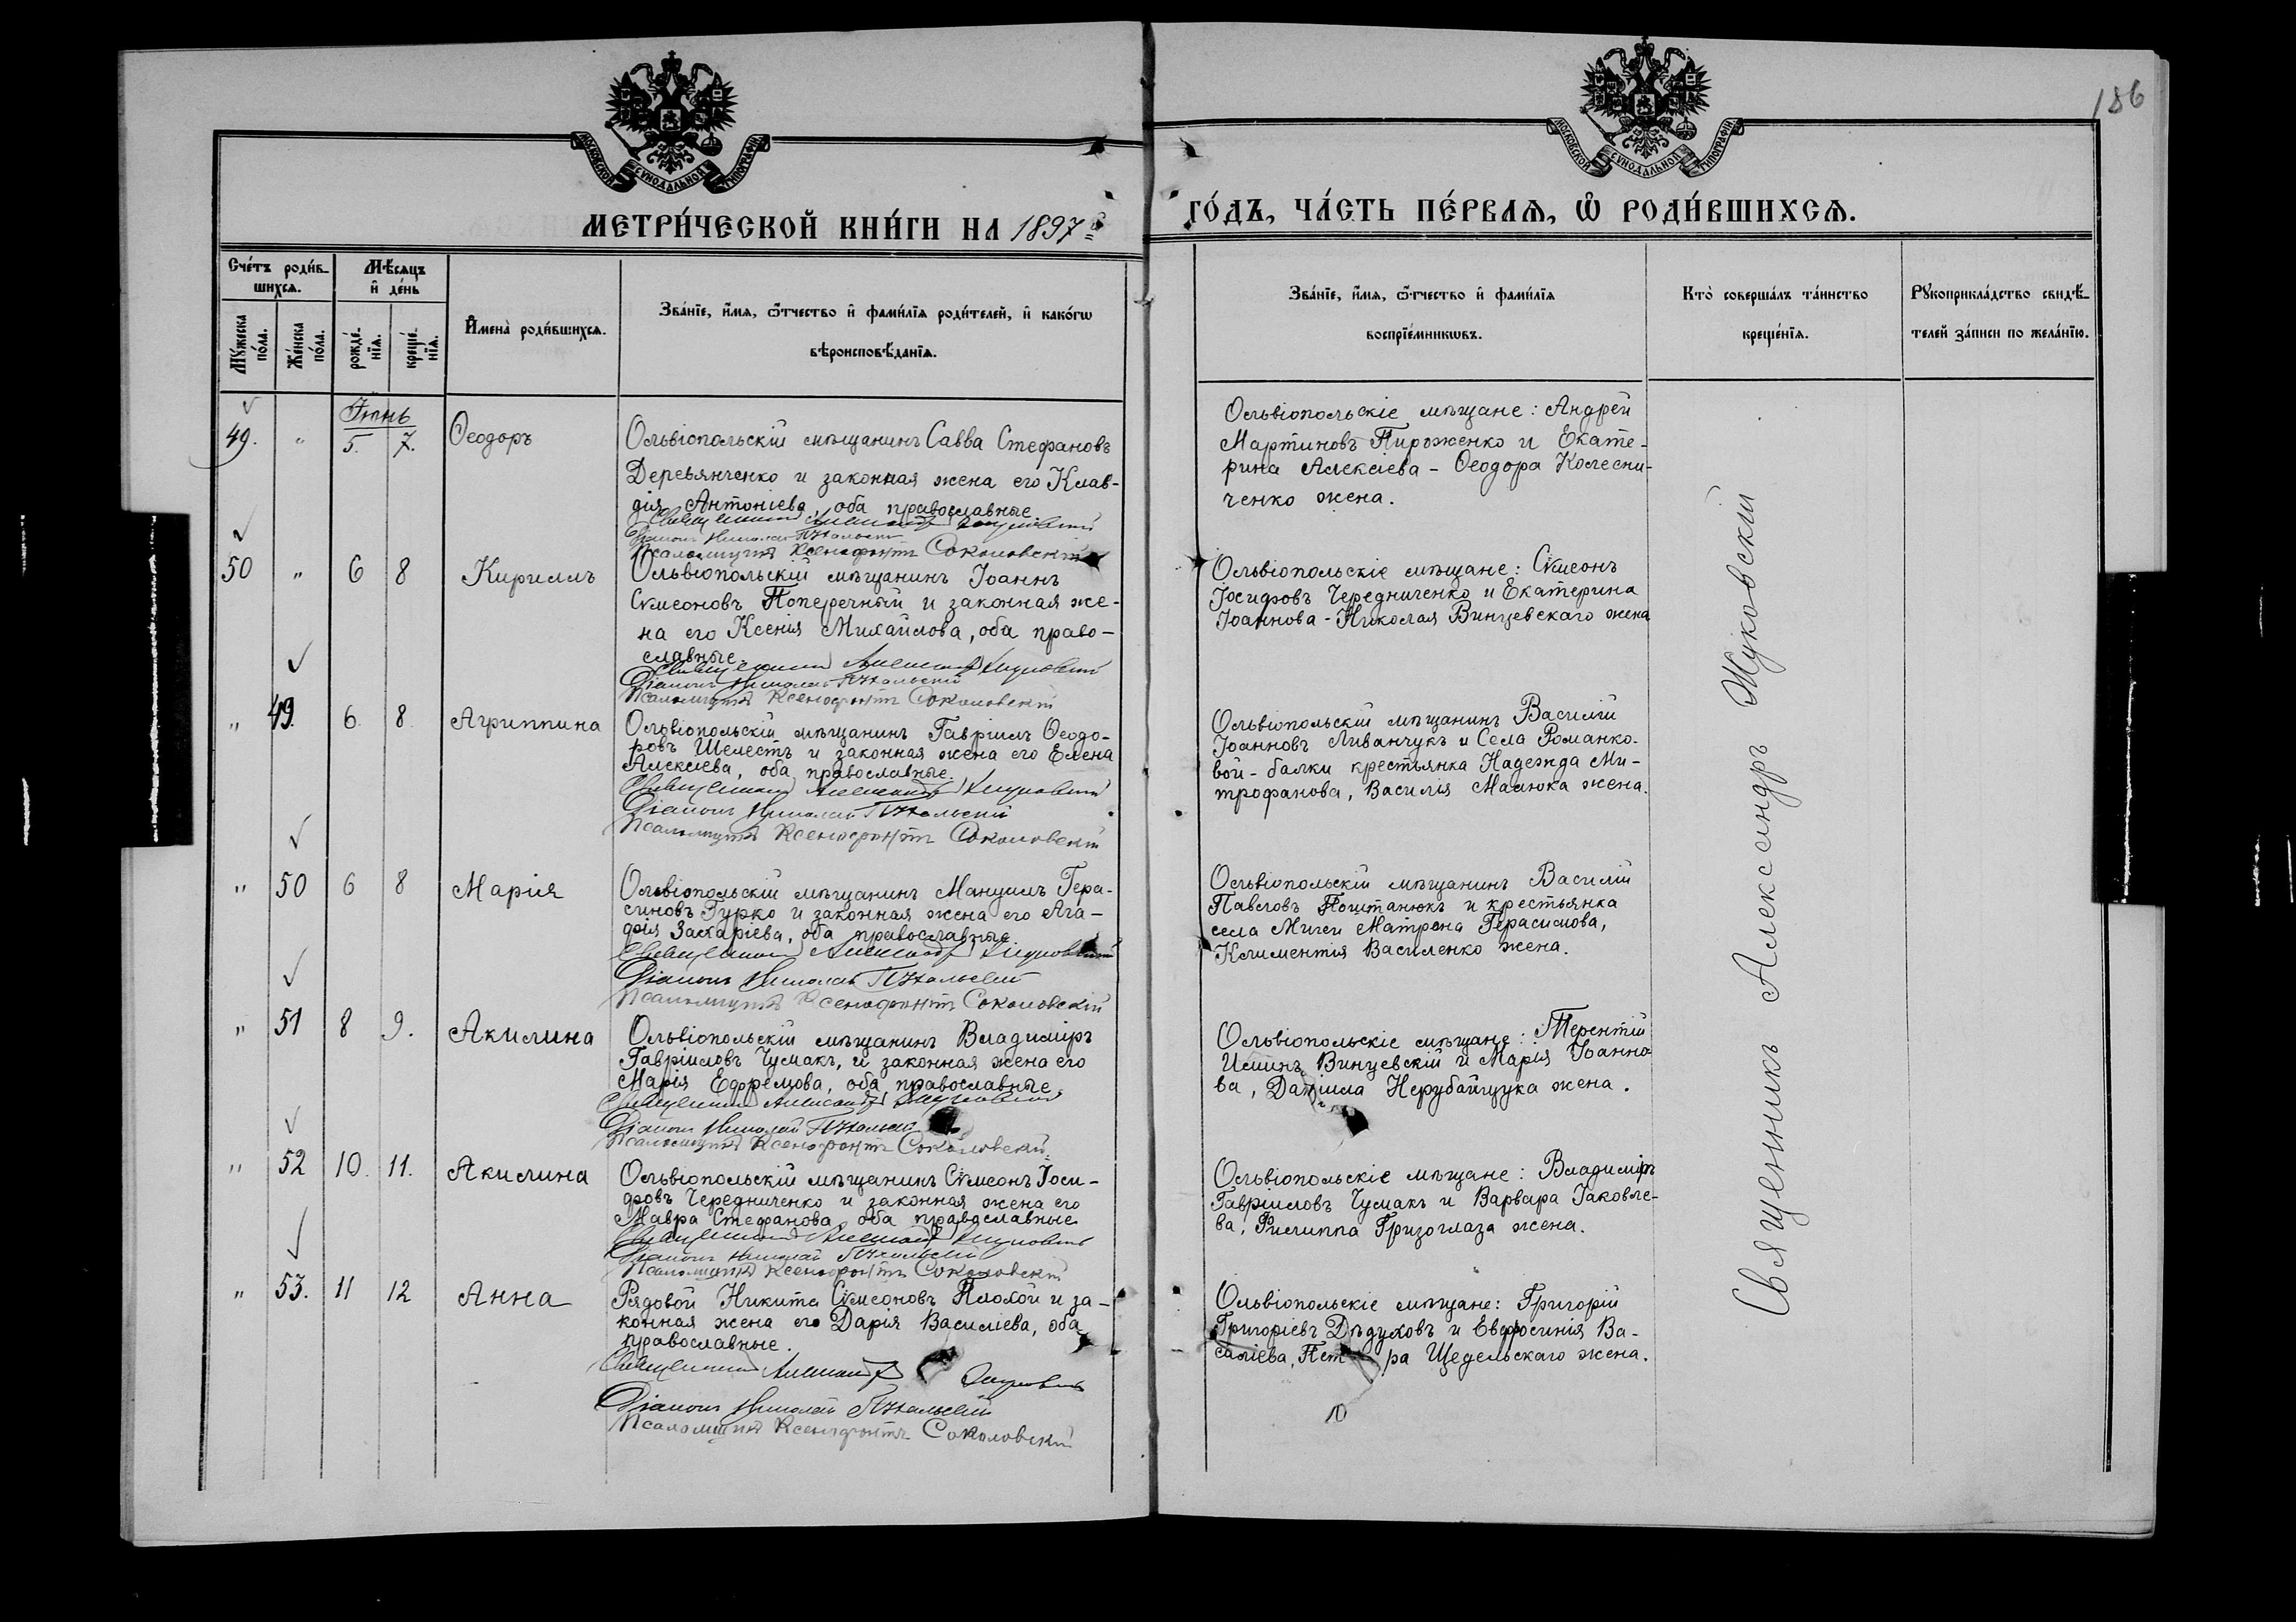 186
МОСКОВСКОЙ СѴНОДАЛЬНОЙ ТИПОГРАФІИ
МОСКОВСКОЙ СѴНОДАЛЬНОЙ ТИПОГРАФІИ
МЕТРИ́ЧЕСКОЙ КНИ́ГИ НА 1897й
ГО́ДЪ, ЧА́СТЬ ПЕ́РВАѦ, Ѽ РОДИ́ВШИХСѦ.
Сче́тъ роди́в-
шихсѧ.
Мꙋжеска
по́ла.
Же́нска
по́ла.
Мѣ́сѧцъ
и҆ де́нь
рожде́-
нїѧ.
креще́-
нїѧ.
И҆мена̀ роди́вшихсѧ.
Зва́нїе, и҆́мѧ, ѻ҆́тчество и҆ фами́лїѧ роди́телей, и҆ како́гѡ
вѣроисповѣ́данїѧ.
Зва́нїе, и҆́мѧ, ѻ҆́тчество и҆ фами́лїѧ
воспрїе́мникѡвъ.
Кто̀ соверша́лъ та́инство
креще́нїѧ.
Рꙋкоприкла́дство свидѣ́-
телей за́писи по жела́нїю.
Іюнь
49. " 5. 7. Ѳеодоръ
Ольвіопольскій мѣщанинъ Савва Стефановъ
Деревянченко и законная жена его Клав-
дія Антоніева, оба православные.
Священникъ Александръ Жуковскій
Діаконъ Николай
Псаломщикъ Ксенофонтъ Соколовскій
Ольвіопольскіе мѣщане: Андрей
Мартиновъ Пироженко и Екате-
рина Алексіева - Ѳеодора Колесни-
ченко жена.
50 " 6 8 Кириллъ
Ольвіопольскій мѣщанинъ Іоаннъ
Сѵмеоновъ Поперечный и законная же-
на его Ксенія Михайлова, оба право-
славные.
Священникъ Александръ Жуковскій
Діаконъ Николай
Псаломщикъ Ксенофонтъ Соколовскій
Ольвіопольскіе мѣщане: Сѵмеонъ
Іосифовъ Чередниченко и Екатерина
Іоаннова - Николая Винцевскаго жена
" 49. 6. 8. Агриппина
Ольвіопольскій мѣщанинъ Гавріилъ Ѳеодо-
ровъ Шелестъ и законная жена его Елена
Алексіева, оба православные.
Священникъ Александръ Жуковскій
Діаконъ Николай
Псаломщикъ Ксенофонтъ Соколовскій
Ольвіопольскій мѣщанинъ Василій
Іоанновъ Ливанчукъ и Села Романко-
вой-балки крестьянка Надежда Ми-
трофанова, Василія Малюка жена.
" 50 6 8 Марія
Ольвіопольскій мѣщанинъ Мануилъ Гера-
симовъ Гурко и законная жена его Ага-
фія Захаріева, оба православные
Священникъ Александръ Жуковскій
Діаконъ Николай
Псаломщикъ Ксенофонтъ Соколовскій
Ольвіопольскій мѣщанинъ Василій
Павловъ Поштанюкъ и крестьянка
села Мигеи Матрона Герасимова,
Климентія Василенко жена.
" 51 8 9. Акилина
Ольвіопольскій мѣщанинъ Владиміръ
Гавріиловъ Чумакъ, и законная жена его
Марія Ефремова, оба православные
Священникъ Александръ Жуковскій
Діаконъ Николай
Псаломщикъ Ксенофонтъ Соколовскій.
Ольвіопольскіе мѣщане: Терентій
Ильинъ Винцевскій и Марія Іоанно-
ва, Даніила Нерубайщука жена.
" 52 10. 11. Акилина
Ольвіопольскій мѣщанинъ Сѵмеонъ Іоси-
фовъ Чередниченко и законная жена его
Мавра Стефанова, оба православные
Священникъ Александръ Жуковскій
Діаконъ Николай
Псаломщикъ Ксенофонтъ Соколовскій
Ольвіопольскіе мѣщане: Владиміръ
Гавріиловъ Чумакъ и Варвара Іаковле-
ва, Филиппа Гризоглаза жена.
" 53. 11 12 Анна
Рядовой Никита Сѵмеоновъ Плохой и за-
конная жена его Дарія Василіева, оба
православные.
Священникъ Александръ Жуковскій
Діаконъ Николай
Псаломщикъ Ксенофонтъ Соколовскій
Ольвіопольскіе мѣщане: Григорій
Григоріевъ Дѣдуховъ и Евфросинія Ва-
силіева, Петра Щедельскаго жена.
Священникъ Александръ Жуковскій